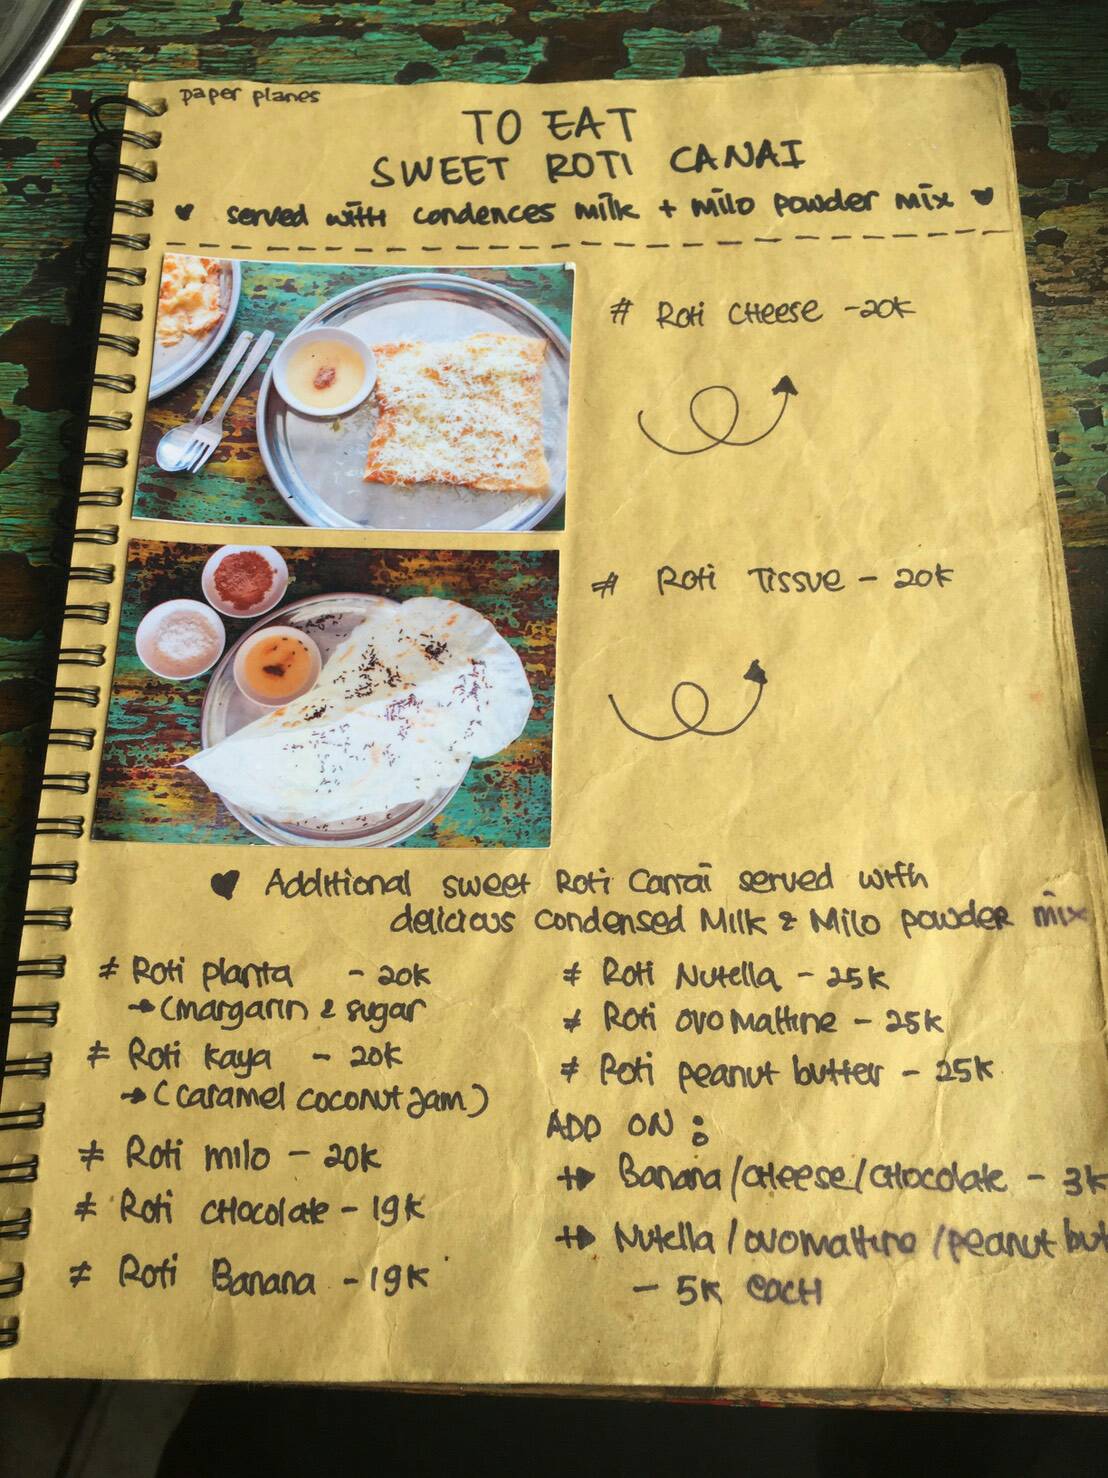 paper planes
TO EAT
SWEET ROTI CANAI
♥ served with condences milk + milo powder mix ♥
# Roti cheese - 20k
# Roti Tissue - 20k
♥ Additional sweet Roti Canai served with
delicious condensed Milk & Milo powder mix
# Roti planta - 20k
→ (margarin & sugar
# Roti kaya - 20k
→ (caramel coconut jam)
# Roti milo - 20k
# Roti chocolate - 19k
# Roti Banana - 19k
# Roti Nutella - 25k
# Roti ovomaltine - 25k
# Roti peanut butter - 25k
ADD ON :
+→ Banana/cheese/chocolate - 3k
+→ Nutella/ovomaltine/peanut but
- 5k each